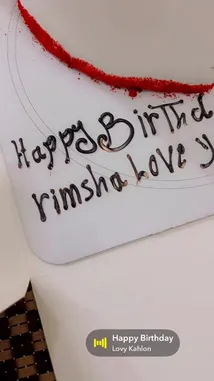 Happy BirThd
rimsha Love y
Happy Birthday
Lovy Kahlon